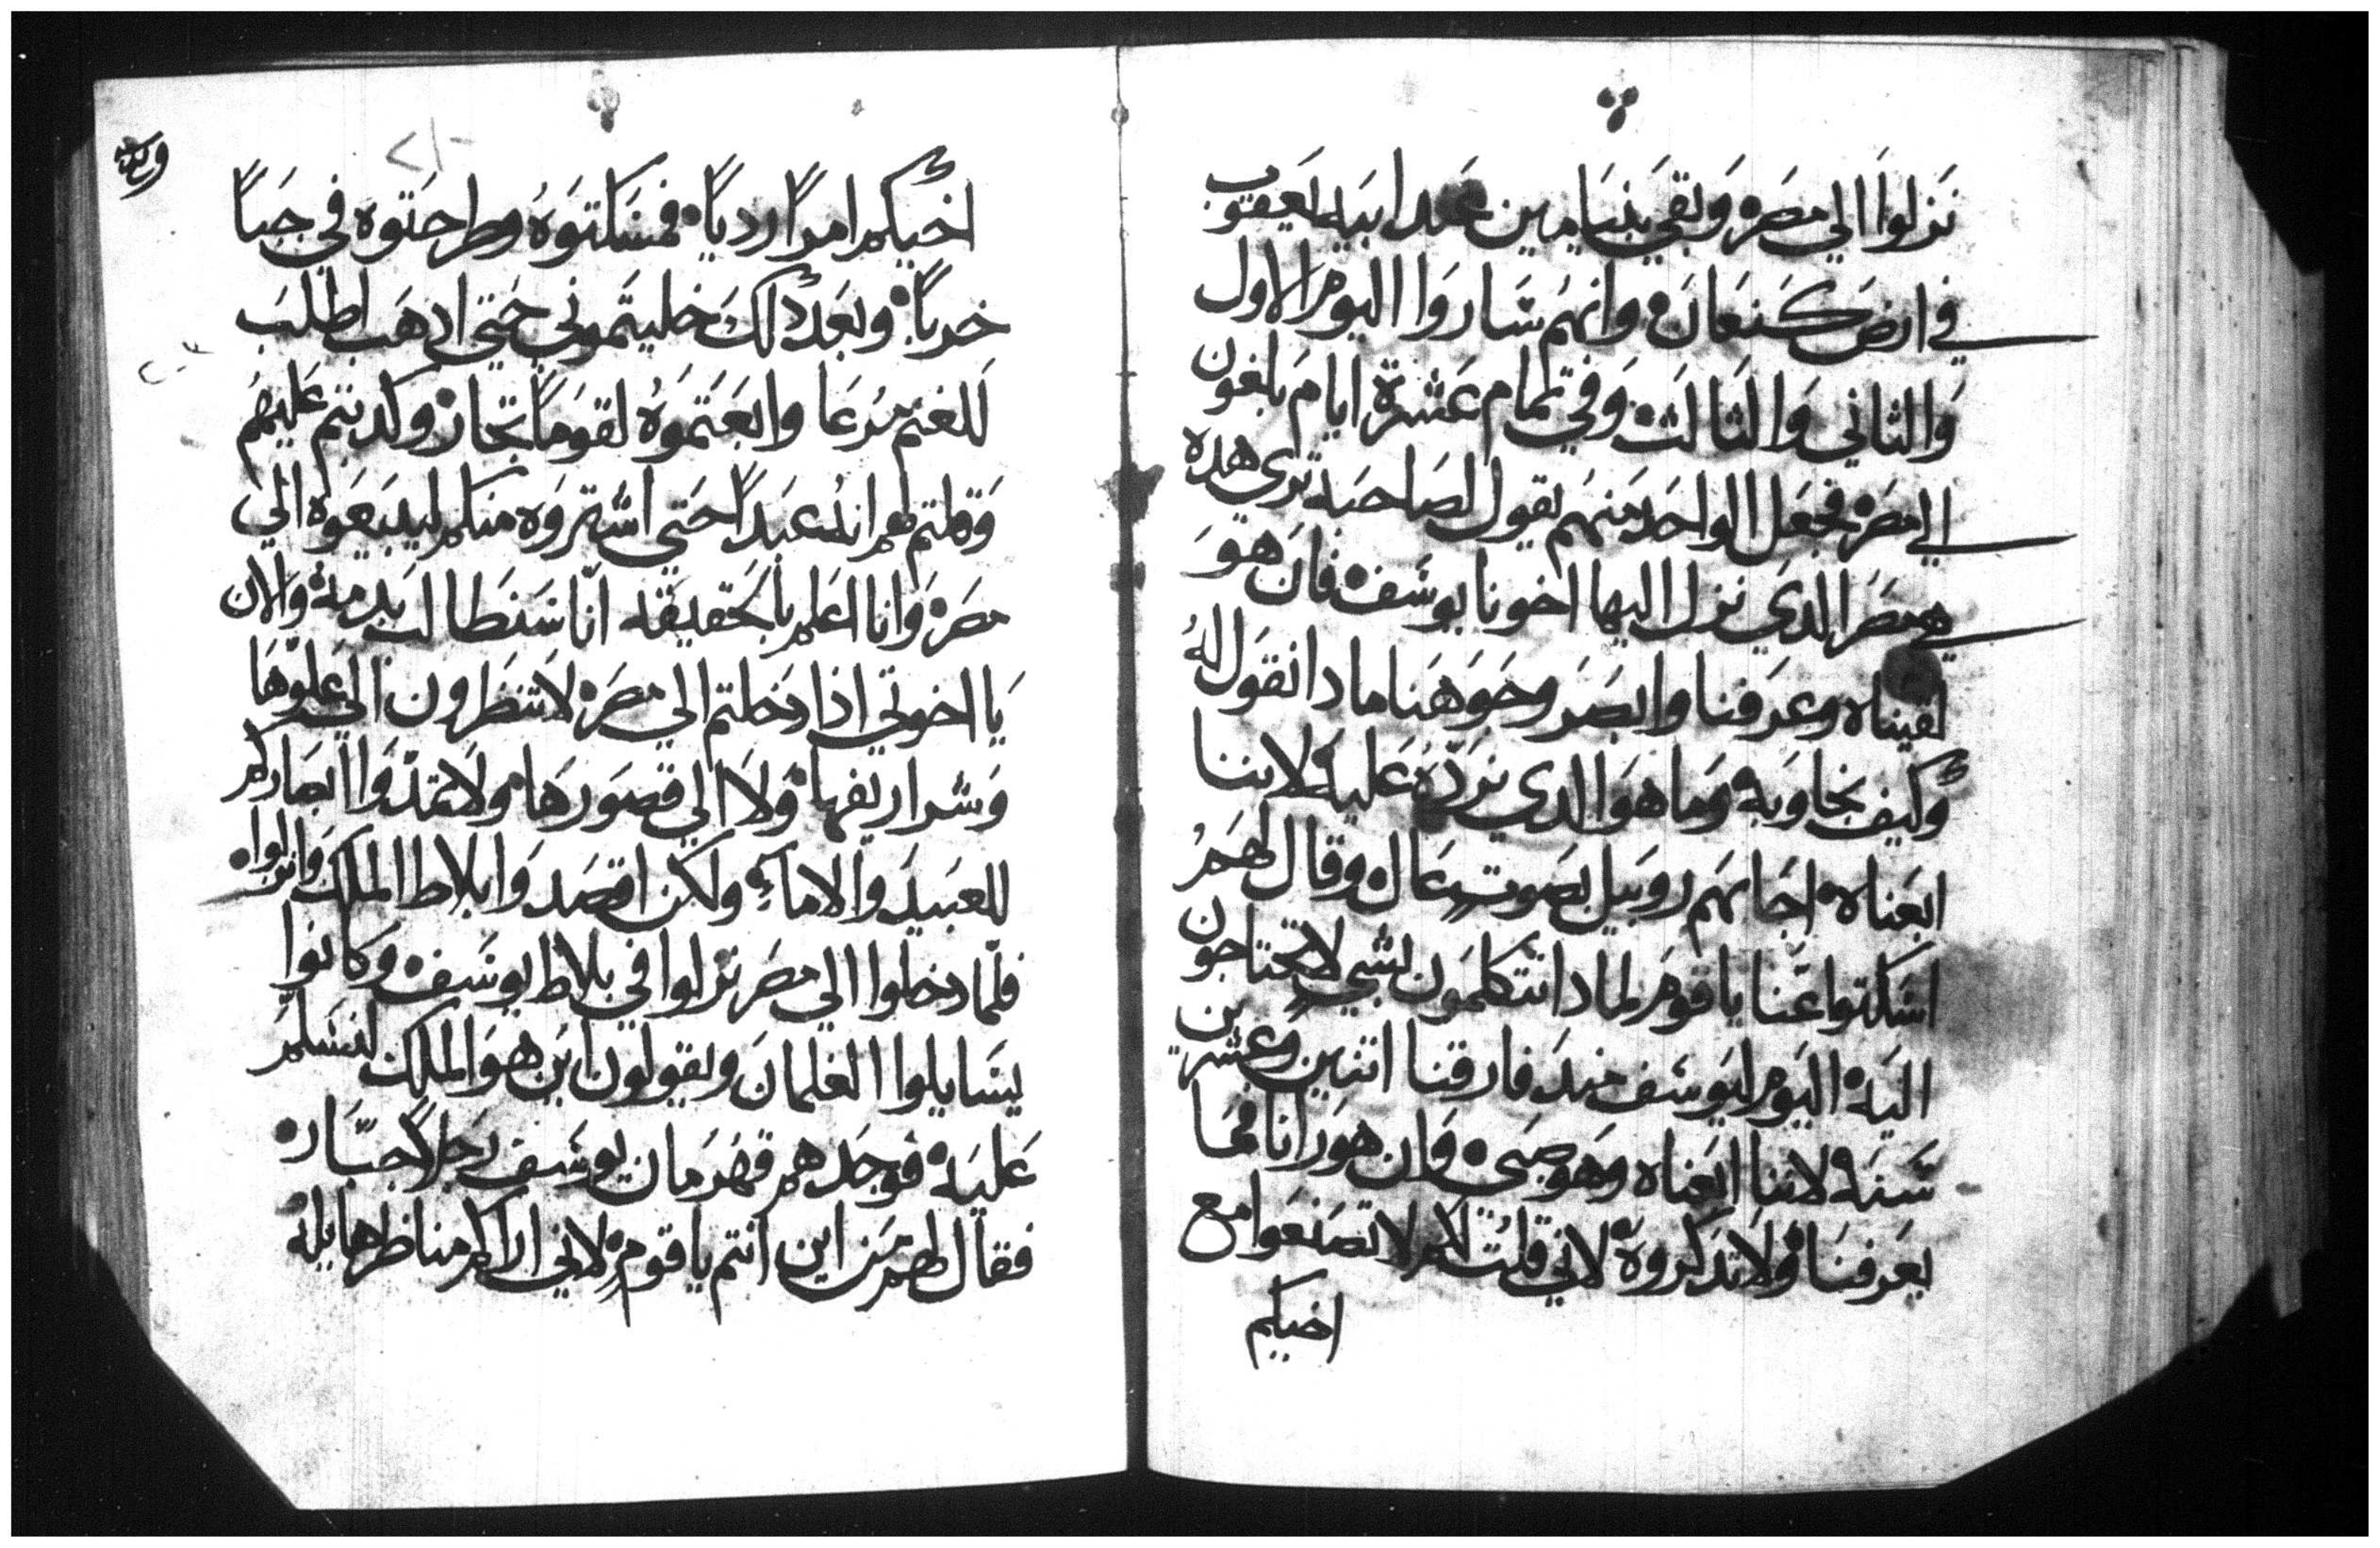 نزلوا الي مصر وبقي بنيامين عند ابيه يعقوب
في ارض كنعان وانهم ساروا اليوم الاول
والثاني والثالث وفي تمام عشرة ايام بلغون
الي مصر فجعل الواحد منهم يقول لصاحبه تري هده
هي مصر الدي نزل اليها اخونا يوسف فان هو
لقيناه وعرفنا وابصر وجوهنا مادا نقول له
وكيف نجاوبه وما هوا الدي نرده عليه لاننا
ابعناه اجابهم روبيل بصوت عال وقال لهم
اسكتوا عنا يا قوم لمادا تتكلمون بشي لا تحتاجون
اليه اليوم ليوسف مند فارقنا اتنين وعشرين
سنة لاننا ابعناه وهو صبي وان هو رانا فما
يعرفنا ولا تدكروه لاني قلت لكم لا تصنعوا مع
اخيكم
اخيكم امرا رديا فمسكتوه وطرحتوه في جبا
خربا وبعد دلك خليتموني حتي ادهب اطلب
للغنم مرعا وابعتموه لقوما تجار وكدبتم عليهم
وقلتم لهم انه عبدا حتي اشتروه منكم ليبيعوه الي
مصر وانا اعلم بالحقيقه انا سنطالب بدمه والان
يا اخوتي اذا دخلتم الي مصر لا تنظرون الي علوها
وشراريفها ولا الي قصورها ولا تمدوا ابصاركم
للعبيد والاماء ولكن اقصدوا بلاط الملك وانزلوا
فلما دخلوا الي مصر نزلوا في بلاط يوسف وكانوا
يسايلوا الغلمان ويقولون اين هو الملك لنسلم
عليه فوجدهم قهرمان يوسف رجلا جبار
فقال لهم من اين انتم يا قوم لاني اراكم مناظرا هايلة